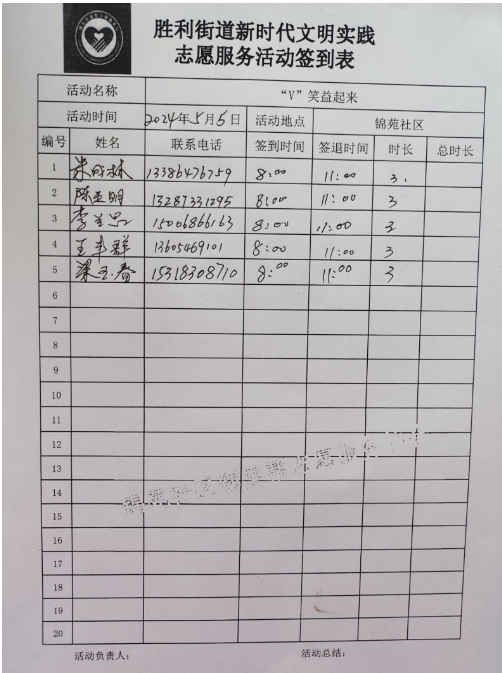 胜利街道新时代文明实践
志愿服务活动签到表
活动名称 “V”笑益起来
活动时间 2024年5月5日 活动地点 锦苑社区
编号 姓名 联系电话 签到时间 签退时间 时长 总时长
1 13386476759 8:00 11:00 3.
2 陈亚明 13287331295 8:00 11:00 3
3 李兰忠 15006866163 8:00 11:00 3
4 王丰群 13605469101 8:00 11:00 3
5 梁玉春 15318308710 8:00 11:00 3
6
7
8
9
10
11
12
13
14
15
16
17
18
19
20
活动负责人: 活动总结: